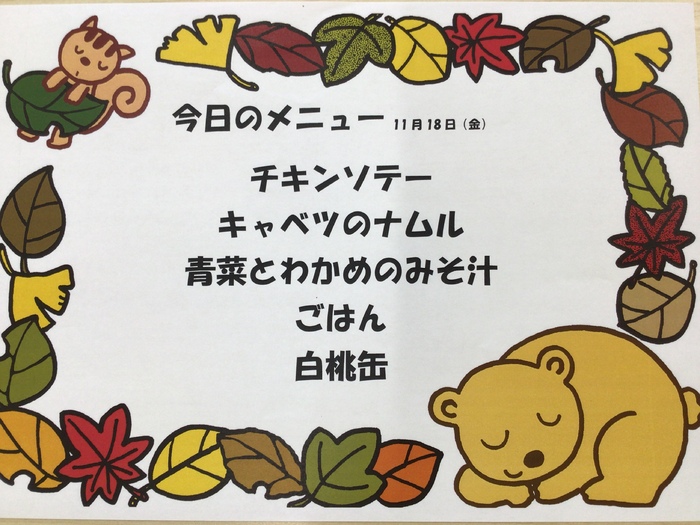 今日のメニュー 11月18日（金）
チキンソテー
キャベツのナムル
青菜とわかめのみそ汁
ごはん
白桃缶